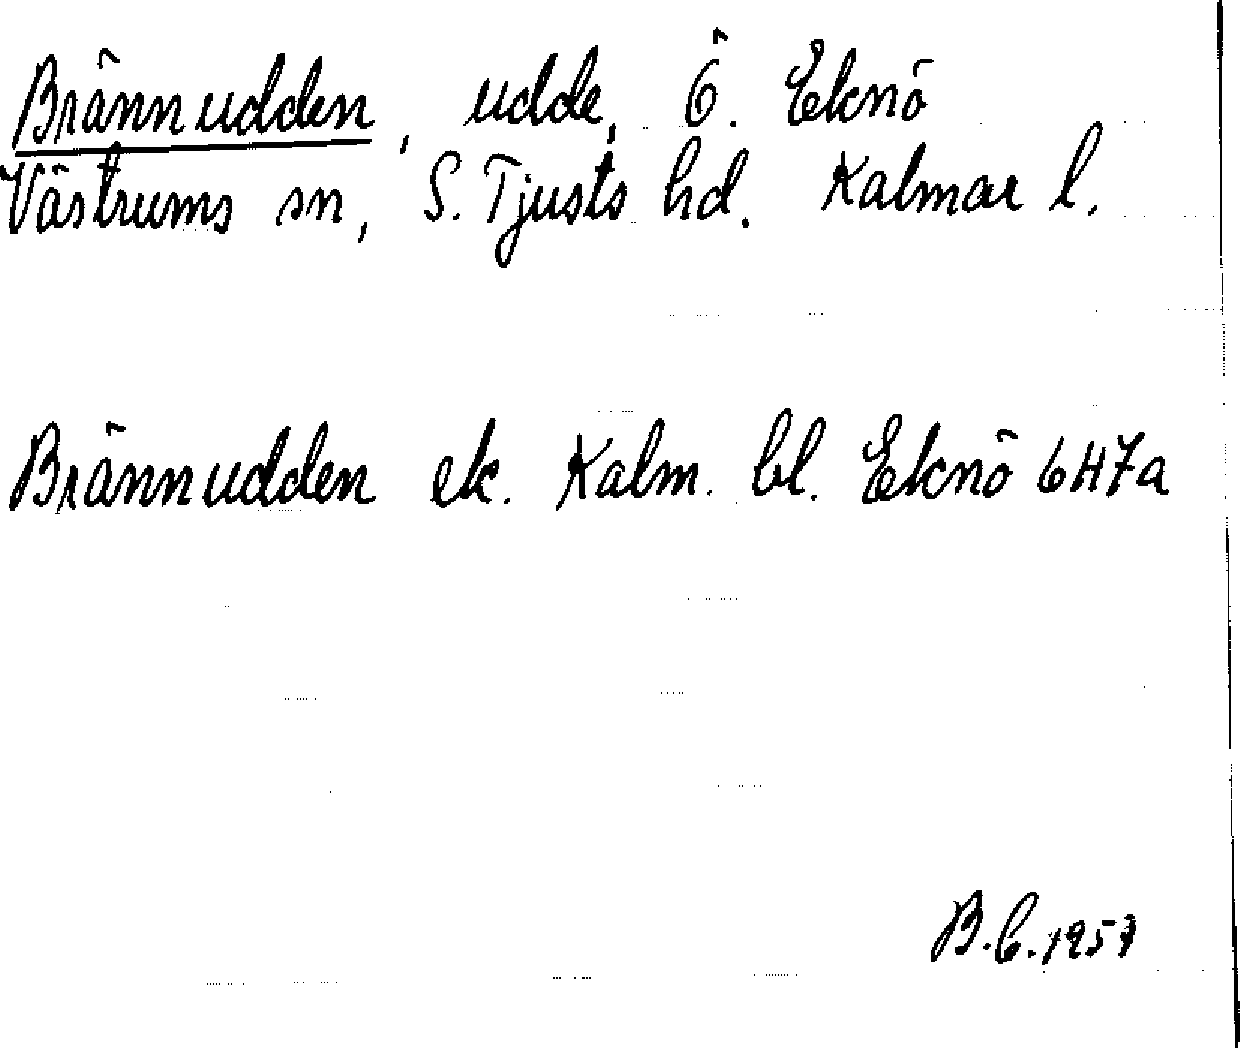 Brännudden, udde, Ö. Eknö
Västrums sn, S. Tjusts hd. Kalmar l.
Brännudden ek. Kalm. bl. Eknö 6H7a
B.C.1957